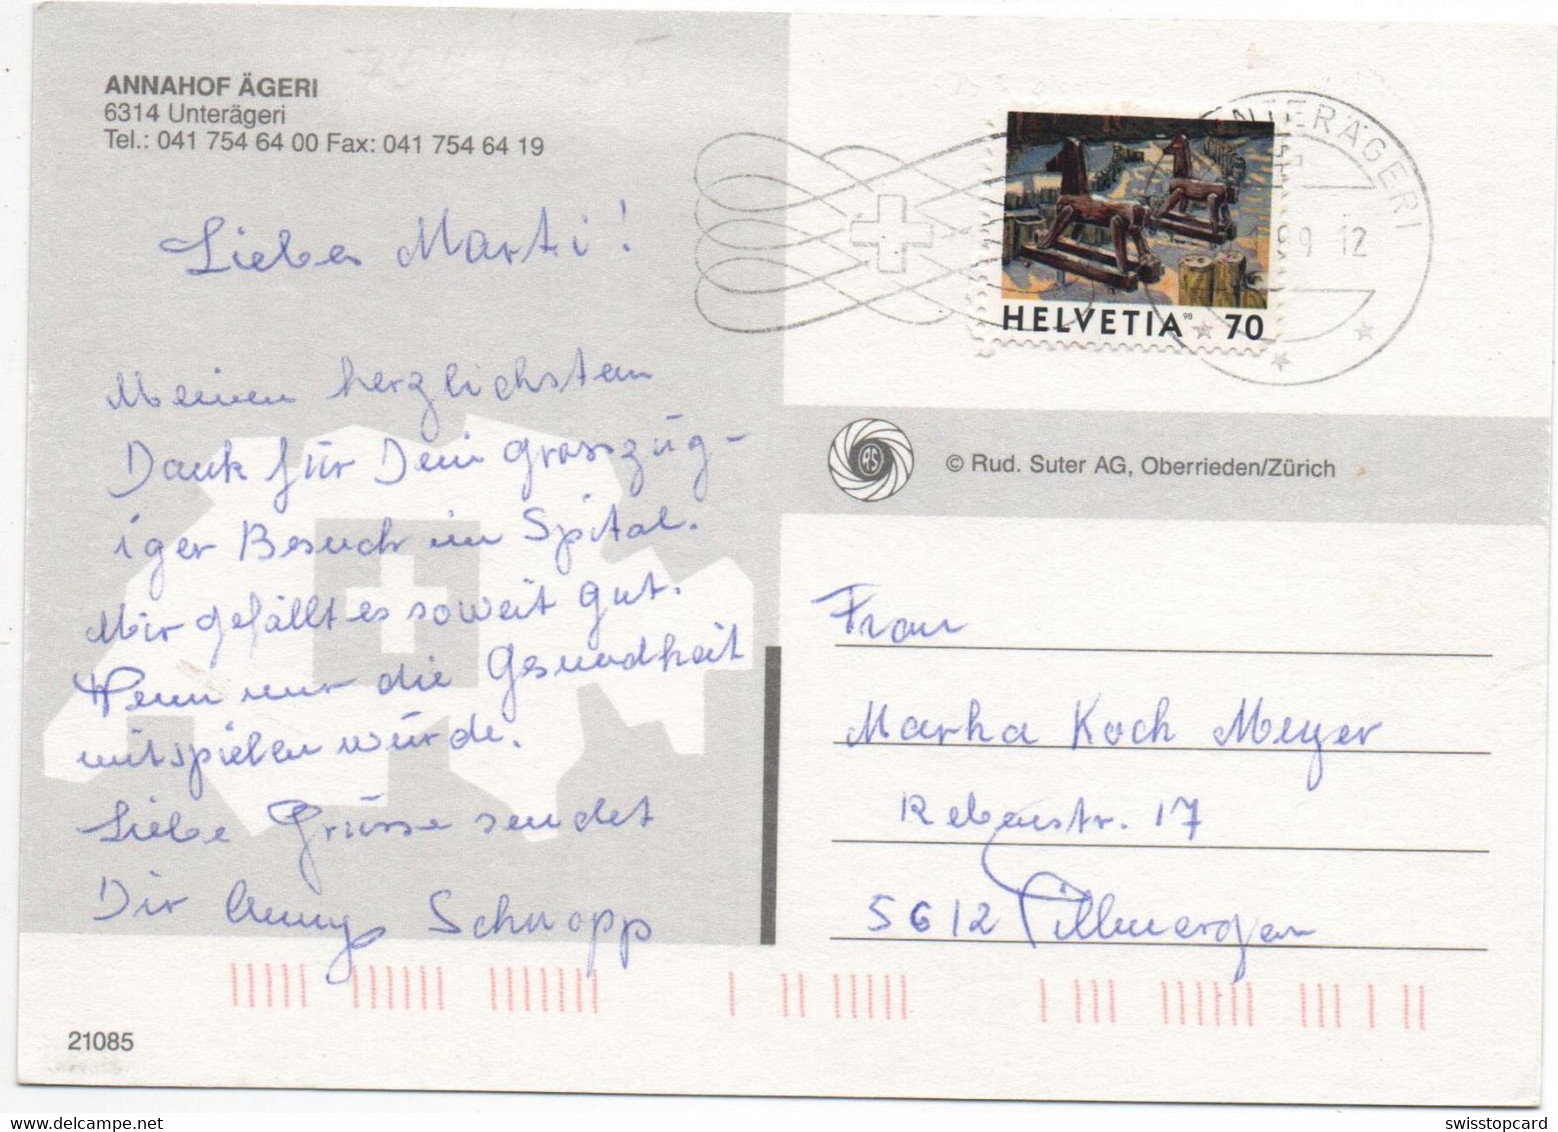 ANNAHOF ÄGERI
6314 Unterägeri
Tel.: 041 754 64 00 Fax: 041 754 64 19
Liebes Marti!
Meinen herzlichsten
Dank für Dein grosszüg-
iger Besuch im Spital.
Mir gefällt es soweit gut.
Wenn nur die Gesundheit
mitspielen würde.
Liebe Grüsse sendet
Dir Anny Schnopp
21085
UNTERÄGERI
99 12
HELVETIA 98 70
RS
© Rud. Suter AG, Oberrieden/Zürich
Frau
Martha Koch Meyer
Rebenstr. 17
5612 Villmergen
swisstopcard